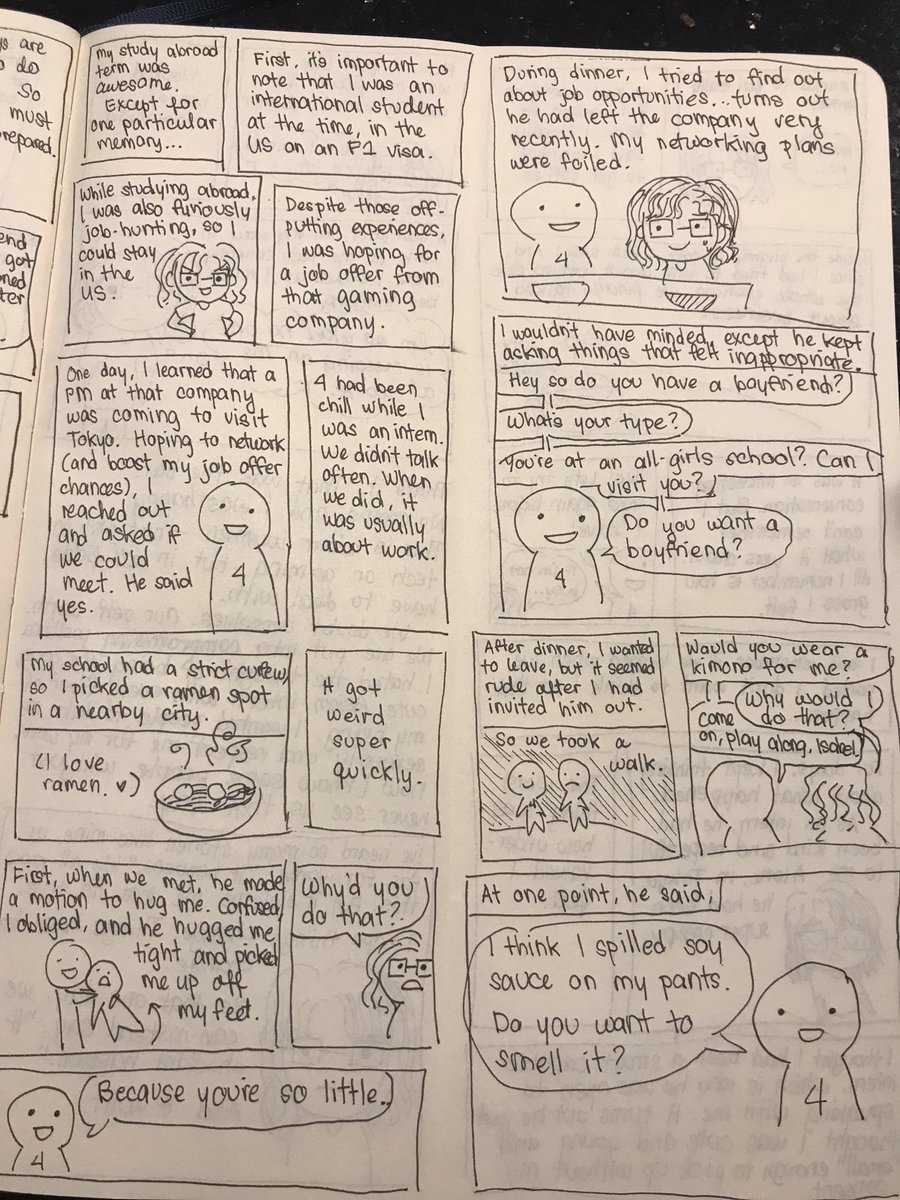 ys are
o do
So
must
repared.
end
got
oned
ter
my study abroad
term was
awesome.
Except for
one particular
memory...
First, it's important to
note that I was an
international student
at the time, in the
US on an F1 visa.
While studying abroad,
I was also furiously
job-hunting, so I
could stay
in the
US.
Despite those off-
putting experiences,
I was hoping for
a job offer from
that gaming
company.
One day, I learned that a
PM at that company
was coming to visit
Tokyo. Hoping to network
(and boost my job offer
chances), I
reached out
and asked if
we could
meet. He said
yes.
4
4 had been
chill while I
was an intern.
We didn't talk
often. When
we did, it
was usually
about work.
My school had a strict curfew,
so I picked a ramen spot
in a nearby city.
(I love
ramen. ♥)
It got
weird
super
quickly.
First, when we met, he made
a motion to hug me. Confused,
I obliged, and he hugged me
tight and picked
me up off
my feet.
Why'd you
do that?
Because you're so little.
4
During dinner, I tried to find out
about job opportunities...turns out
he had left the company very
recently. My networking plans
were foiled.
4
I wouldn't have minded, except he kept
asking things that felt inappropriate.
Hey so do you have a boyfriend?
What's your type?
You're at an all-girls school? Can I
visit you?
Do you want a
boyfriend?
4
After dinner, I wanted
to leave, but it seemed
rude after I had
invited him out.
So we took a
walk.
Would you wear a
kimono for me?
Why would I
do that?
come
on, play along, Isabel.
At one point, he said,
I think I spilled soy
sauce on my pants.
Do you want to
smell it?
4